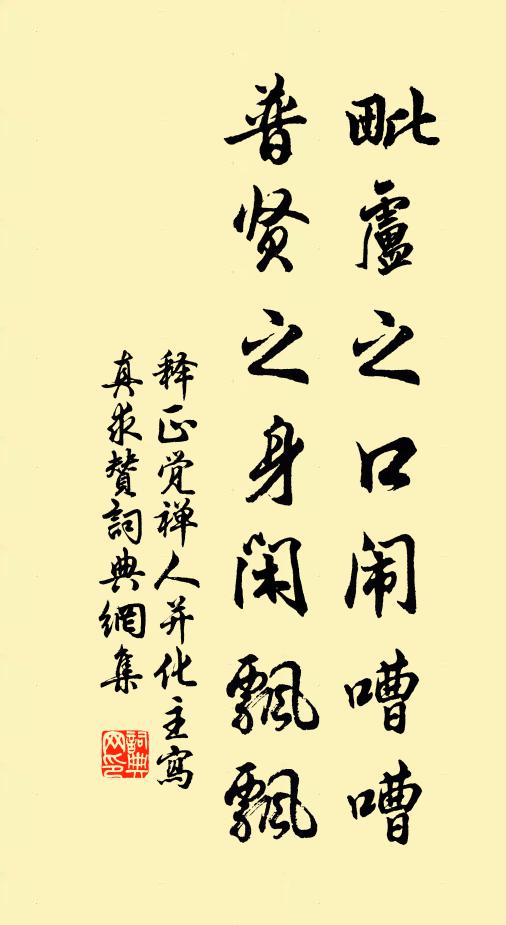 毗卢之口闹嘈嘈
普贤之身闲飘飘
释正觉禅人并化主写
真求赞詞典網集
詞典網印